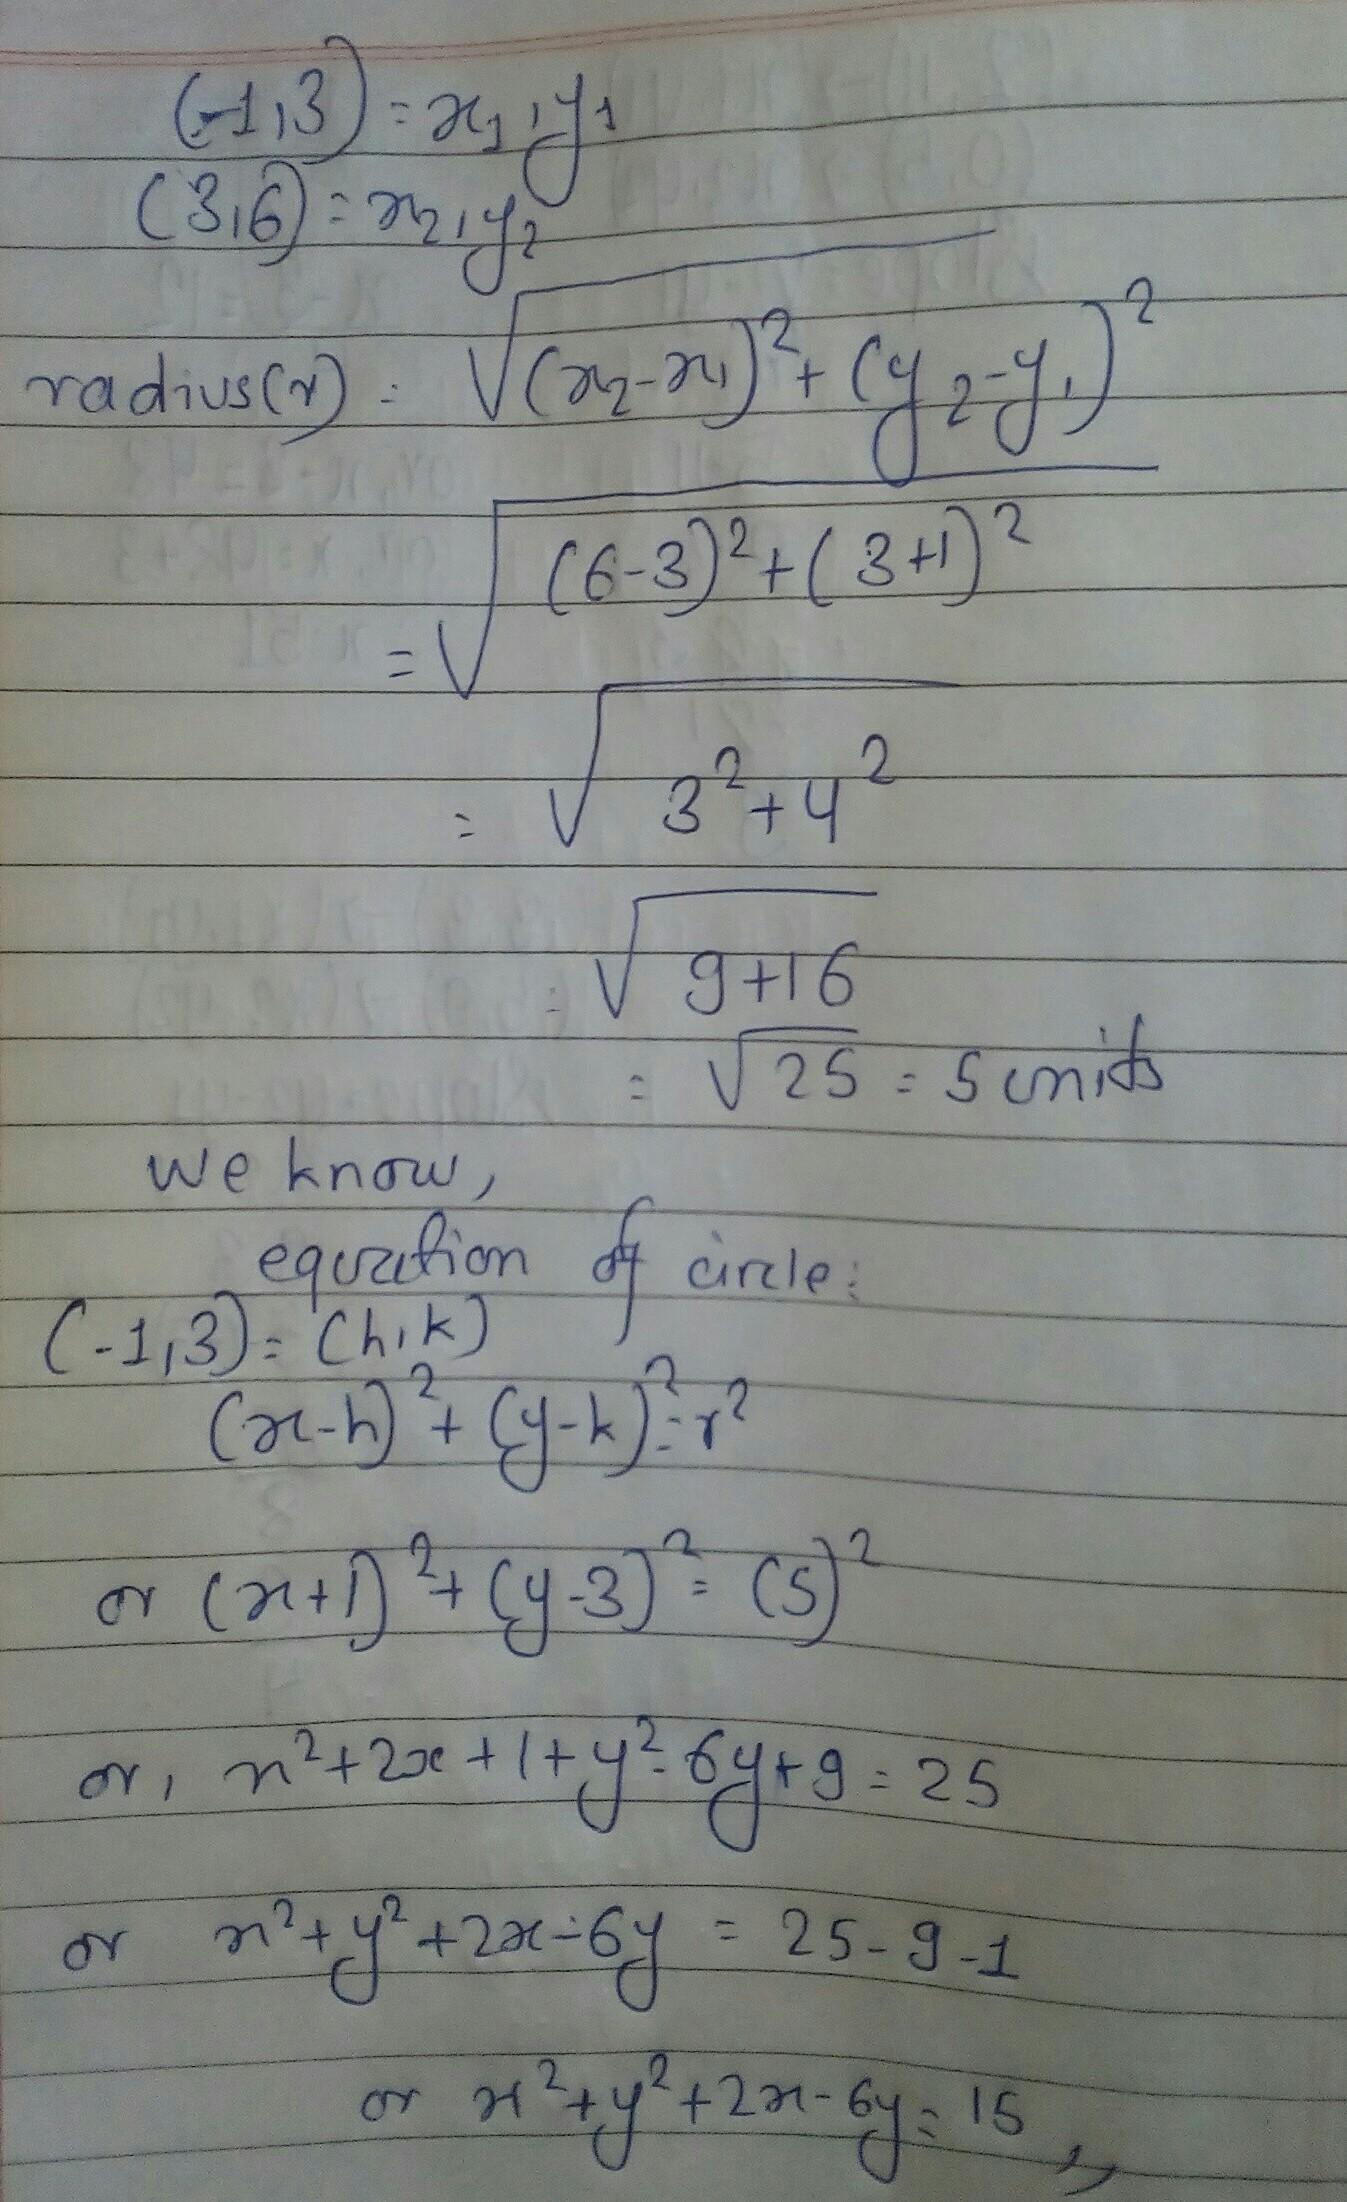 (-1,3) = x₁,y₁
(3,6) = x₂,y₂
radius(r) = √(x₂-x₁)²+(y₂-y₁)²
= √(6-3)²+(3+1)²
= √3²+4²
= √9+16
= √25 = 5 units
We know,
equation of circle:
(-1,3) = (h,k)
(x-h)²+(y-k)²=r²
or (x+1)²+(y-3)²=(5)²
or, x²+2x+1+y²-6y+9=25
or x²+y²+2x-6y = 25-9-1
or x²+y²+2x-6y=15,,